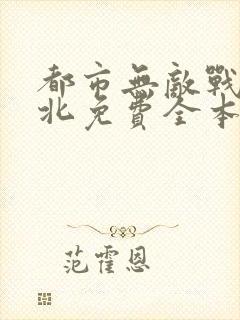 都市無敵戰
北免費全本
范霍恩